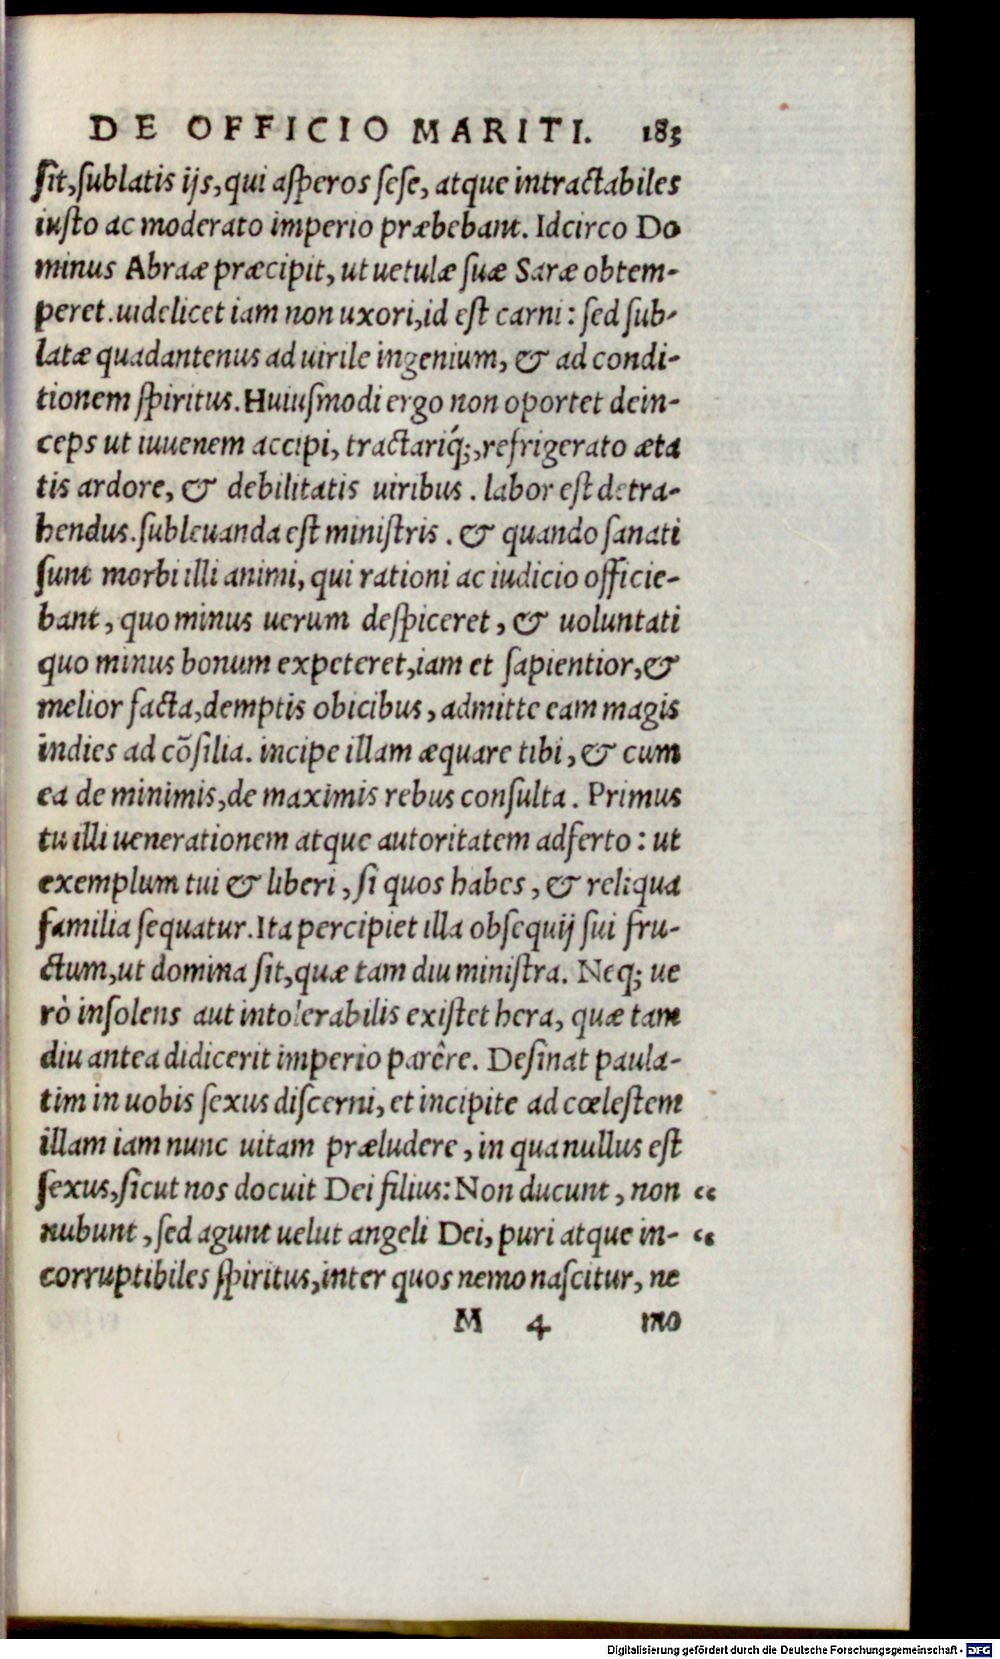 DE OFFICIO MARITI. 183
ſit, ſublatis ijs, qui aſperos ſeſe, atque intractabiles
iuſto ac moderato imperio præbebant. Idcirco Do
minus Abraæ præcipit, ut uetulæ ſuæ Saræ obtem-
peret. uidelicet iam non uxori, id eſt carni: ſed ſub-
latæ quadantenus ad uirile ingenium, & ad condi-
tionem ſpiritus. Huiuſmodi ergo non oportet dein-
ceps ut iuuenem accipi, tractariq́;, refrigerato æta
tis ardore, & debilitatis uiribus. labor eſt detra-
hendus. ſubleuanda eſt miniſtris. & quando ſanati
ſunt morbi illi animi, qui rationi ac iudicio officie-
bant, quo minus uerum deſpiceret, & uoluntati
quo minus bonum expeteret, iam et ſapientior, &
melior facta, demptis obicibus, admitte eam magis
indies ad cõſilia. incipe illam æquare tibi, & cum
ea de minimis, de maximis rebus conſulta. Primus
tu illi uenerationem atque autoritatem adferto: ut
exemplum tui & liberi, ſi quos habes, & reliqua
familia ſequatur. Ita percipiet illa obſequij ſui fru-
ctum, ut domina ſit, quæ tam diu miniſtra. Neq; ue
rò inſolens aut intolerabilis exiſtet hera, quæ tam
diu antea didicerit imperio parêre. Deſinat paula-
tim in uobis ſexus diſcerni, et incipite ad cœleſtem
illam iam nunc uitam præludere, in qua nullus eſt
ſexus, ſicut nos docuit Dei filius: Non ducunt, non “
nubunt, ſed agunt uelut angeli Dei, puri atque in- “
corruptibiles ſpiritus, inter quos nemo naſcitur, ne
M 4 mo
Digitalisierung gefördert durch die Deutsche Forschungsgemeinschaft - DFG